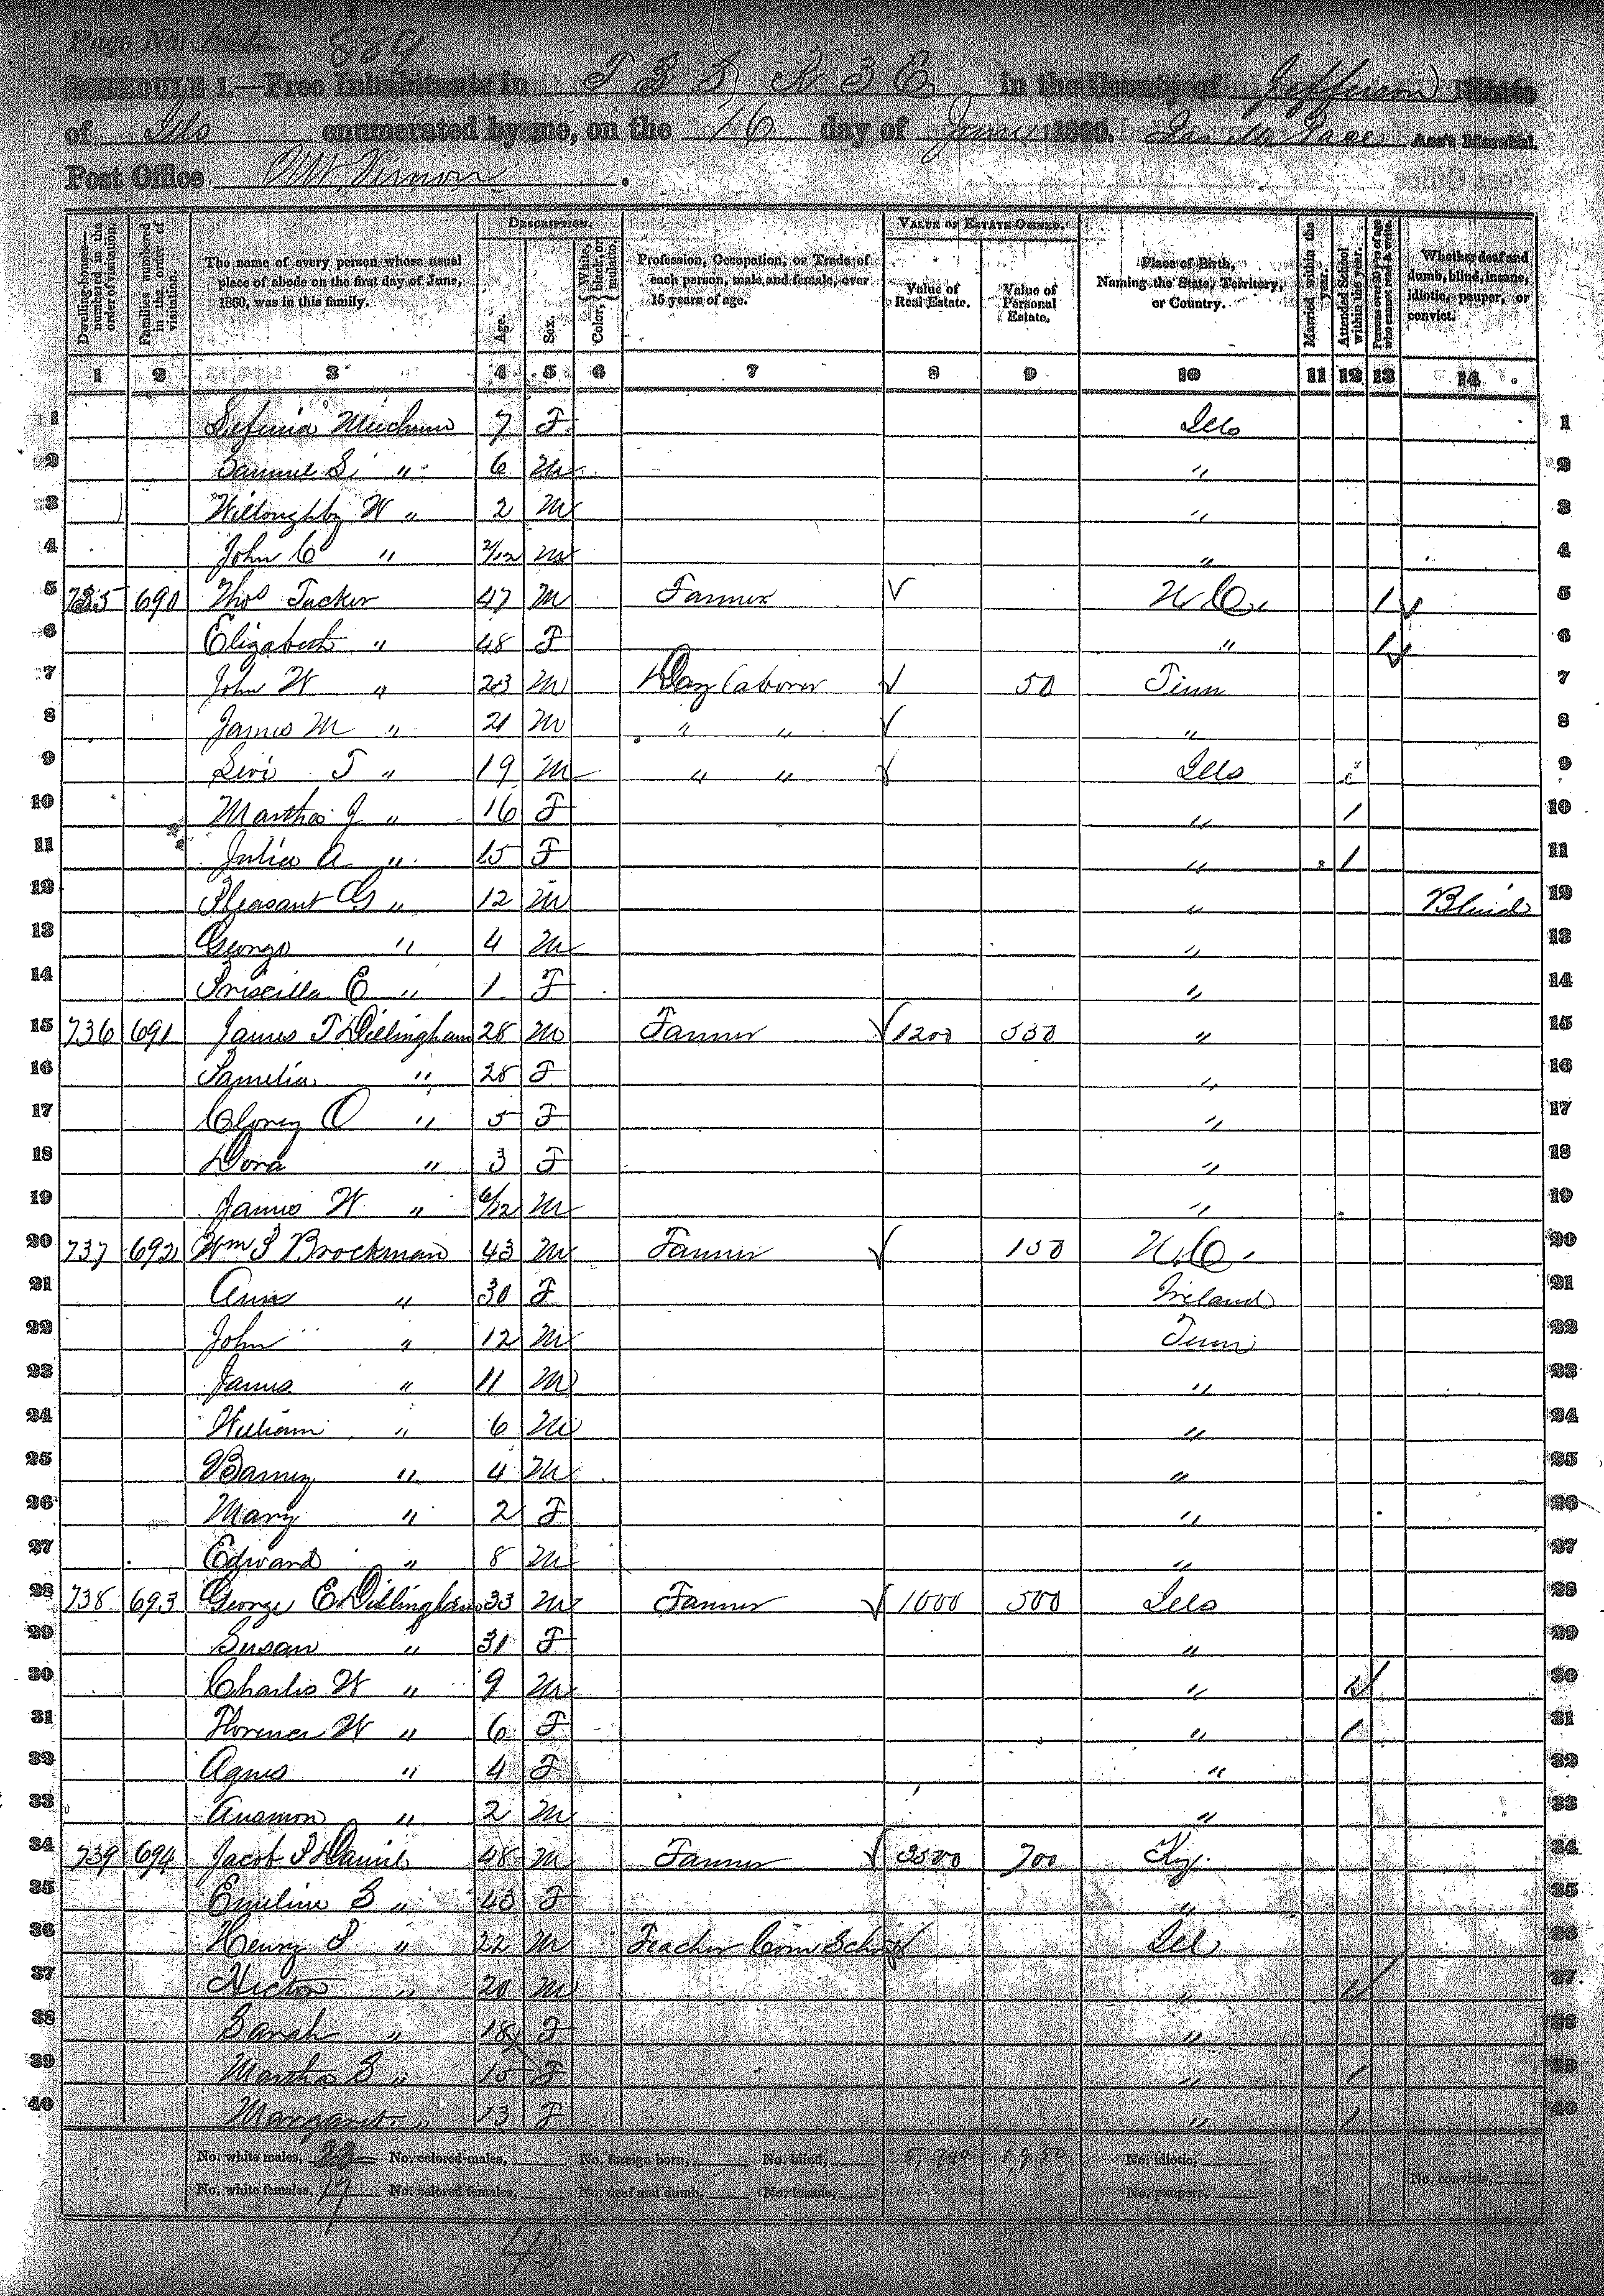 Page No. 889
SCHEDULE 1.—Free Inhabitants in T 3 S, R 3 E in the County of Jefferson State
of Ills enumerated by me, on the 16 day of June 1860. Pace Ass't Marshal.
Post Office Mt. Vernon.
DESCRIPTION. VALUE OF ESTATE OWNED.
Dwelling-houses—numbered in the order of visitation. Families numbered in the order of visitation. The name of every person whose usual place of abode on the first day of June, 1860, was in this family. Age. Sex. Color, {White, black, or mulatto. Profession, Occupation, or Trade of each person, male and female, over 15 years of age. Value of Real Estate. Value of Personal Estate. Place of Birth, Naming the State, Territory, or Country. Married within the year. Attended School within the year. Persons over 20 y'rs of age who cannot read & write. Whether deaf and dumb, blind, insane, idiotic, pauper, or convict.
1 2 3 4 5 6 7 8 9 10 11 12 13 14
1 Meichum 7 F Ills 1
2 Samuel S " 6 M " 2
3 Willoughby W " 2 M " 3
4 John C " 2/12 M " 4
5 735 690 Thos Tucker 47 M Farmer N C. 1 5
6 Elizabeth " 48 F " 1 6
7 John W " 23 M Day Laborer 50 Tenn 7
8 James M " 21 M " " " 8
9 Levi T " 19 M " " Ills 1 9
10 Martha J " 16 F " 1 10
11 Julia A " 15 F " 1 11
12 Pleasant G " 12 M " Blind 12
13 George " 4 M " 13
14 Priscilla E " 1 F " 14
15 736 691 James T Dillingham 28 M Farmer 1200 550 " 15
16 Pamelia " 28 F " 16
17 O " 5 F " 17
18 Dora " 3 F " 18
19 James W " 6/12 M " 19
20 737 692 Wm P Brockman 43 M Farmer 150 N.C. 20
21 Ann " 30 F Ireland 21
22 John " 12 M Tenn 22
23 James " 11 M " 23
24 William " 6 M " 24
25 Barney " 4 M " 25
26 Mary " 2 F " 26
27 Edward " 8 M " 27
28 738 693 George E Dillingham 33 M Farmer 1000 500 Ills 28
29 Susan " 31 F " 29
30 Charles W " 9 M " 1 30
31 Florence W " 6 F " 1 31
32 Agnes " 4 F " 32
33 Ausmon " 2 M " 33
34 739 694 Jacob P Daniel 48 M Farmer 3500 700 Ky. 34
35 Emeline S " 43 F " 35
36 Henry P " 22 M Teacher Com School Ill 36
37 Hector " 20 M " 1 37
38 Sarah " 18 F " 38
39 Martha S " 15 F " 1 39
40 Margaret " 13 F " 1 40
No. white males, 23 No. colored males, No. foreign born, No. blind, 5,700 1,950 No. idiotic,
No. white females, 17 No. colored females, No. deaf and dumb, No. insane, No. paupers, No. convicts,
40